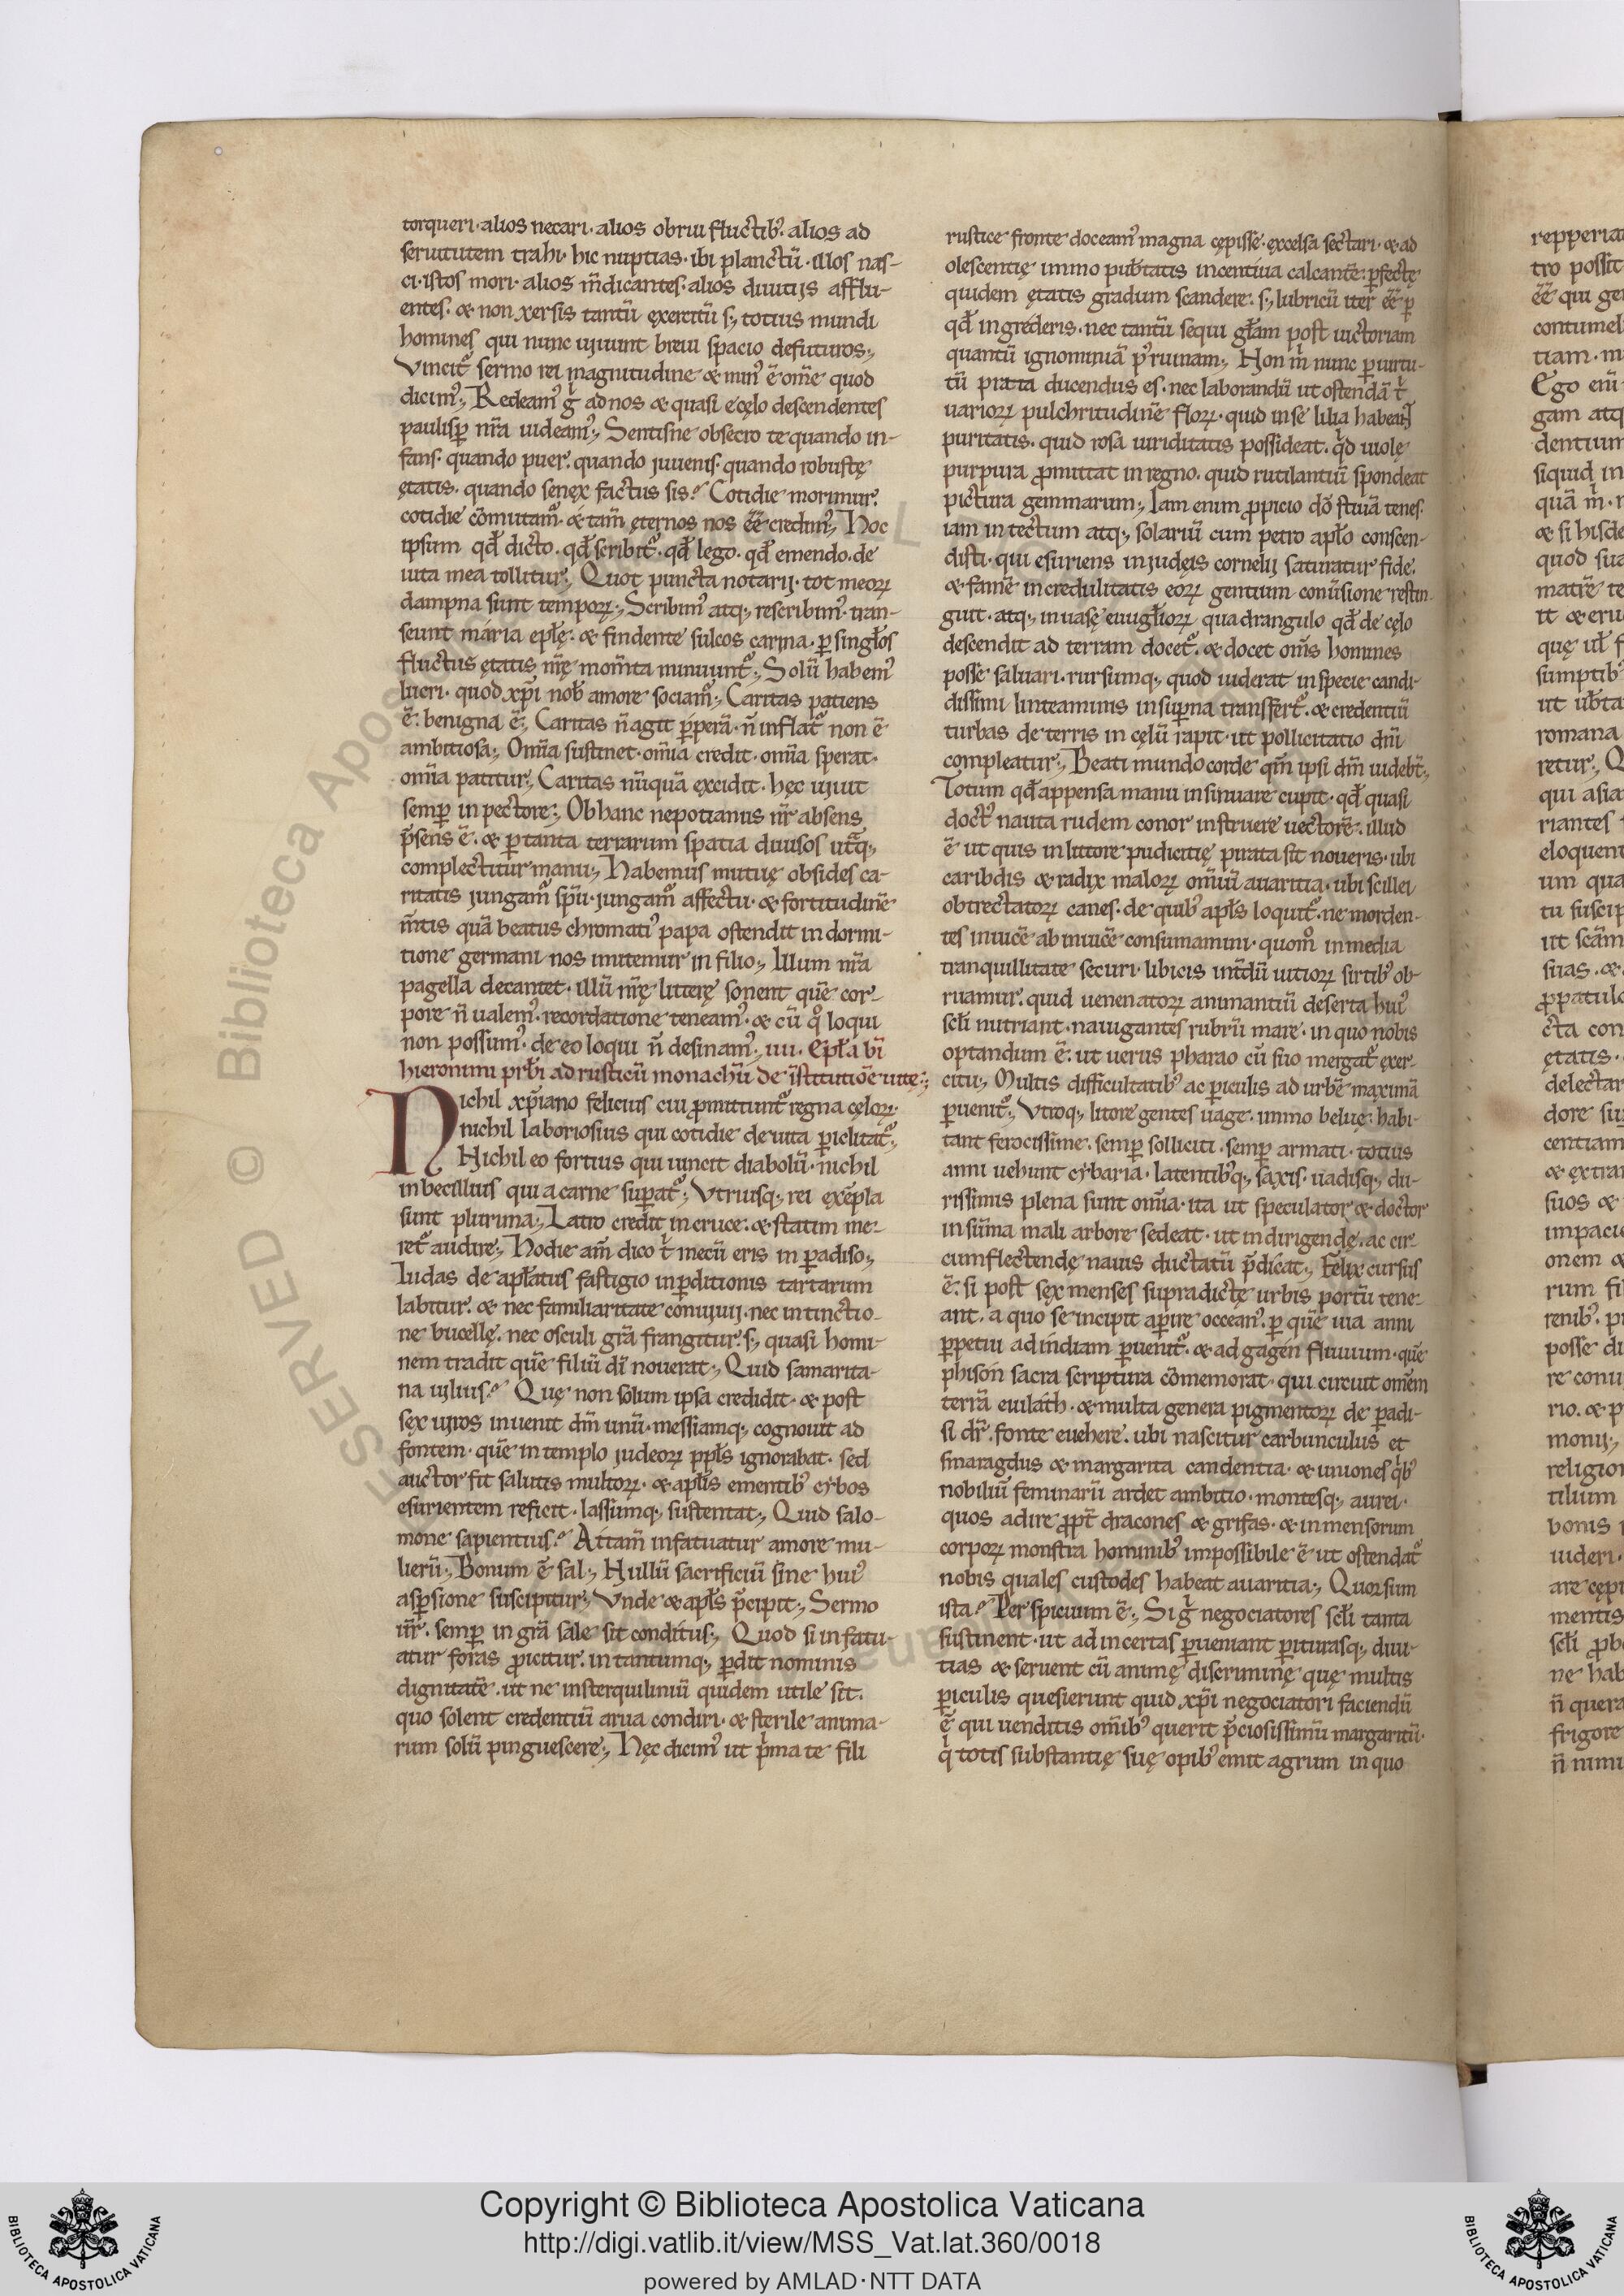 torqueri· alios necari· alios obrui fluctib᷒· alios ad
seruitutem trahi· hic nuptias· ibi planctū· illos nas-
ci· istos mori· alios m̄dicantes· alios diuitijs afflu-
entes· & non xersis tantū exercitū s; totius mundi
homines qui nunc uiuunt breui spacio defuturos;
Vincit᷒ sermo rei magnitudine & min᷒ ē om̄e quod
dicim᷒; Redeam᷒ gͥ ad nos & quasi e cęlo descendentes
paulisꝑ nr̄a uideam᷒; Sentisne obsecro te quando in-
fans· quando puer· quando juuenis· quando robustę
ętatis· quando senex factus sis? Cotidie morimur·
cotidie cōmutam᷒· & tam̄ ęternos nos eē credim᷒; Hoc
ipsum qd̄ dicto· qd̄ scribit᷒· qd̄ lego· qd̄ emendo· de
uita mea tollitur; Quot puncta notarij· tot meoꝝ
dampna sunt tempoꝝ; Scribim᷒ atq; rescribim᷒· tran-
seunt maria epl̄ę· & findente sulcos carina· ꝑ singl̄os
fluctus ętatis nr̄ę mom̄ta minuunt᷒; Solū habem᷒
lucri· quod xp̄i nob̄ amore sociam᷒; Caritas patiens
ē· benigna ē; Caritas n̄ agit ꝑperā· n̄ inflat᷒ non ē
ambitiosa; Om̄ia sustinet· om̄ia credit· om̄ia sperat·
om̄ia patitur; Caritas nūquā excidit· hęc uiuit
semꝑ in pectore; Ob hanc nepotianus nr̄ absens
p̄sens ē· & ꝑ tanta terrarum spatia diuisos ut̄q;
complectitur manu; Habemus mutuę obsides ca-
ritatis jungam᷒ sp̄u· jungam᷒ affectu· & fortitudinē
m̄tis quā beatus chromati᷒ papa ostendit in dormi-
tione germani nos imitemur in filio; Illum nr̄a
pagella decantet· illū nr̄ę litterę sonent quē cor-
pore n̄ ualem᷒· recordatione teneam᷒· & cū qͦ loqui
non possum᷒· de eo loqui n̄ desinam᷒; uii· Epl̄a bī
hieronimi prb̄i ad rusticū monachū de īstitutiōe uite;
Nichil xp̄iano felicius cui ꝓmittunt᷒ regna cęloꝝ·
nichil laboriosius qui cotidie de uita ꝑiclitat᷒;
Nichil eo fortius qui uincit diabolū· nichil
inbecillius qui a carne suꝑat᷒; Vtriusq; rei exēpla
sunt plurima; Latro credit in cruce· & statim me-
ret᷒ audire; Hodie am̄ dico tͥ mecū eris in ꝑadiso;
Iudas de apl̄atus fastigio in ꝑditionis tartarum
labitur· & nec familiaritate conuiuij· nec intinctio-
ne bucellę· nec osculi grā frangitur· s; quasi homi-
nem tradit quē filiū dī nouerat; Quid samarita-
na uilius? Quę non solum ipsa credidit· & post
sex uiros inuenit dm̄ unū· messiamq; cognouit ad
fontem· quē in templo judeoꝝ ppl̄s ignorabat· sed
auctor fit salutis multoꝝ· & apl̄is ementib᷒ cybos
esurientem reficit· lassumq; sustentat; Quid salo-
mone sapientius? Attam̄ infatuatur amore mu-
lierū; Bonum ē sal; Nullū sacrificiū sine hui᷒
asꝑsione suscipitur; Vnde & apl̄s p̄cipit; Sermo
ur̄· semꝑ in grā sale sit conditus; Quod si infatu-
atur foras ꝓicitur· in tantumq; ꝑdit nominis
dignitatē· ut ne in sterquiliniū quidem utile sit·
quo solent credentiū arua condiri· & sterile anima-
rum solū pinguescere; Hęc dicim᷒ ut pͥma te fili
rustice fronte doceam᷒ magna cępisse· excelsa sectari· & ad
olescentię immo pub̄tatis incentiua calcantē· ꝑfectę
quidem ętatis gradum scandere· s; lubricū iter eē ꝑ
qd̄ ingrederis· nec tantū sequi gl̄am post uictoriam
quantū ignominiā p᷒ ruinam; Non mͥ nunc ꝑ uirtu-
tū prata ducendus es· nec laborandū ut ostendā tͥ
uarioꝝ pulchritudinē floꝝ· quid in se lilia habeāt
puritatis· quid rosa uiriditatis possideat· qͥd uiolę
purpura ꝓmittat in regno· quid rutilantiū spondeat
pictura gemmarum; Iam enim ꝓpicio dō stiuā tenes·
iam in tectum atq; solariū cum petro apl̄o conscen-
disti· qui esuriens in judęis cornelij saturatur fide·
& famē incredulitatis eoꝝ gentium conūsione restin-
guit· atq; in uase euugl̄ioꝝ quadrangulo qd̄ de cęlo
descendit ad terram docet᷒· & docet om̄s homines
posse saluari· rursumq; quod uiderat in specie candi-
dissimi linteaminis in suꝑna transfert᷒· & credentiū
turbas de terris in cęlū rapit· ut pollicitatio dn̄i
compleatur; Beati mundo corde qm̄ ipsi dm̄ uideb̄t;
Totum qd̄ appensa manu insinuare cupit· qd̄ quasi
doct᷒ nauta rudem conor instruere uectorē· illud
ē ut quis in littore pudicitię pirata sit noueris· ubi
caribdis & radix maloꝝ om̄iū auaritia· ubi scillei
obtrectatoꝝ canes· de quib᷒ apl̄s loquit᷒· ne morden-
tes inuicē ab inuicē consumamini· quomͦ in media
tranquillitate securi· libicis int̄dū uitioꝝ sirtib᷒ ob-
ruamur· quid uenenatoꝝ animantiū deserta hui᷒
scl̄i nutriant· nauigantes rubrū mare· in quo nobis
optandum ē· ut uerus pharao cū suo mergat᷒ exer-
citu; Multis difficultatib᷒ ac ꝑiculis ad urbē maximā
ꝑuenit᷒; Vtroq; litore gentes uage· immo beluę· habi-
tant ferocissime· semꝑ solliciti· semꝑ armati· totius
anni uehunt cybaria· latentib᷒q; saxis· uadisq; du-
rissimis plena sunt om̄ia· ita ut speculator & doctor
in sūma mali arbore sedeat· ut in dirigendę· ac cir-
cumflectendę nauis ductatū p̄dicat; Felix cursus
ē· si post sex menses supradictę urbis portū tene-
ant· a quo se incipit aꝑire occean᷒· ꝑ quē uia anni
ꝑpetui ad indiam ꝑuenit᷒· & ad gagen fluuium· quē
phison sacra scriptura cōmemorat· qui circuit om̄em
terrā euilath· & multa genera pigmentoꝝ de ꝑadi-
si dr̄· fonte euehere· ubi nascitur carbunculus et
smaragdus & margarita candentia· & uniones qͥb᷒
nobiliū feminarū ardet ambitio· montesq; aurei·
quos adire ꝓpt̄ dracones & grifas· & inmensorum
corpoꝝ monstra hominib᷒ impossibile ē· ut ostendat᷒
nobis quales custodes habeat auaritia; Quorsum
ista? Perspicuum ē; Si gͥ negociatores scl̄i tanta
sustinent· ut ad incertas ꝑueniant ꝑiturasq; diui-
tias & seruent cū animę discrimine quę multis
ꝑiculis quesierunt quid xp̄i negociatori faciendū
ē· qui uenditis om̄ib᷒ querit p̄ciosissimū margaritū·
qͥ totis substantię suę opib᷒ emit agrum in quo
Copyright © Biblioteca Apostolica Vaticana
http://digi.vatlib.it/view/MSS_Vat.lat.360/0018
powered by AMLAD·NTT DATA
BIBLIOTECA APOSTOLICA VATICANA
BIBLIOTECA APOSTOLICA VATICANA